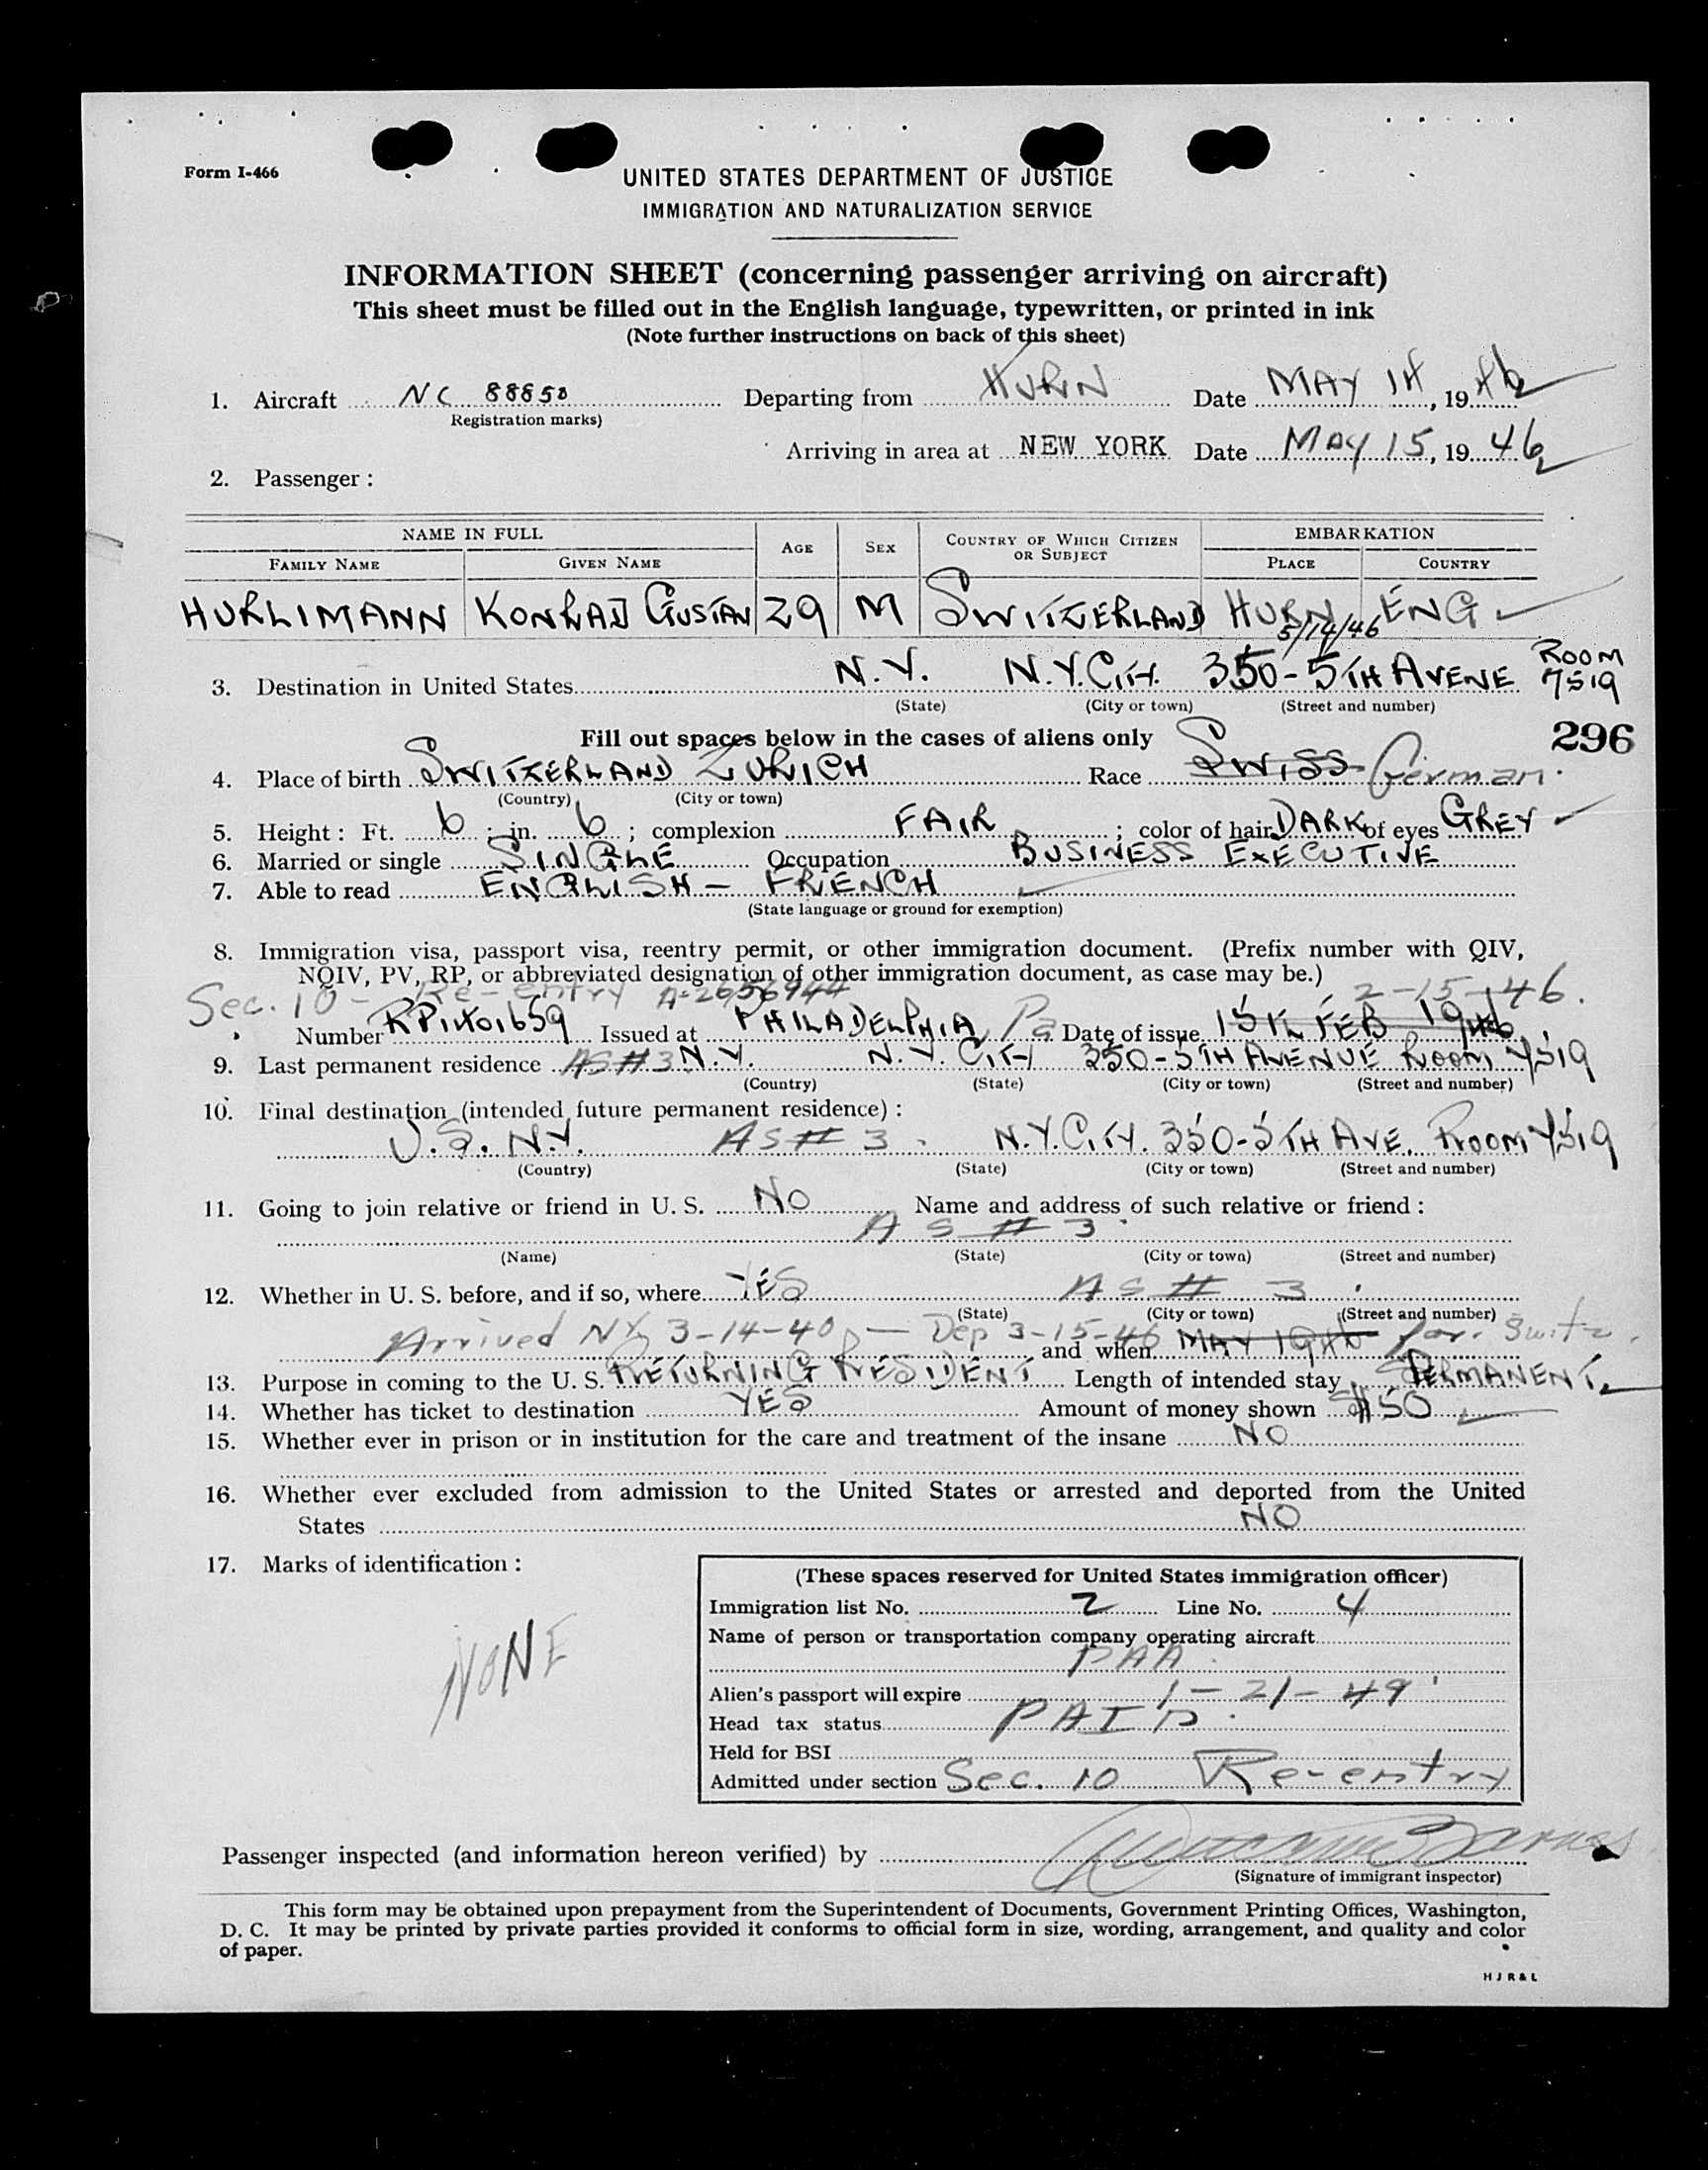 Form I-466
UNITED STATES DEPARTMENT OF JUSTICE
IMMIGRATION AND NATURALIZATION SERVICE
INFORMATION SHEET (concerning passenger arriving on aircraft)
This sheet must be filled out in the English language, typewritten, or printed in ink
(Note further instructions on back of this sheet)
1. Aircraft NC 88850 Departing from HURN Date MAY 14, 1946
Registration marks)
Arriving in area at NEW YORK Date MAY 15, 1946
2. Passenger:
NAME IN FULL AGE SEX COUNTRY OF WHICH CITIZEN OR SUBJECT EMBARKATION
FAMILY NAME GIVEN NAME PLACE COUNTRY
HURLIMANN KONRAD GUSTAV 29 M SWITZERLAND HURN ENG
5/14/46
3. Destination in United States N.Y. N.Y. CITY. 350-5TH AVENE ROOM 7519
(State) (City or town) (Street and number)
Fill out spaces below in the cases of aliens only 296
4. Place of birth SWITZERLAND ZURICH Race SWISS German.
(Country) (City or town)
5. Height: Ft. 6; in. 6; complexion FAIR; color of hair DARK of eyes GREY
6. Married or single SINGLE Occupation BUSINESS EXECUTIVE
7. Able to read ENGLISH - FRENCH
(State language or ground for exemption)
8. Immigration visa, passport visa, reentry permit, or other immigration document. (Prefix number with QIV,
NQIV, PV, RP, or abbreviated designation of other immigration document, as case may be.)
Sec. 10 - Re-entry A-2656944 2-15-46.
Number Issued at PHILADELPHIA Pa Date of issue 15th FEB 1946
9. Last permanent residence AS #3 N.Y. N.Y. CITY 350-5TH AVENUE ROOM 7519
(Country) (State) (City or town) (Street and number)
10. Final destination (intended future permanent residence):
U.S. N.Y. AS # 3. N.Y. CITY. 350-5TH AVE. ROOM 7519
(Country) (State) (City or town) (Street and number)
11. Going to join relative or friend in U. S. NO Name and address of such relative or friend:
AS # 3
(Name) (State) (City or town) (Street and number)
12. Whether in U. S. before, and if so, where YES AS # 3
(State) (City or town) (Street and number)
Arrived NY 3-14-40 - Dep 3-15-46 and when MAY 1940 for Switz.
13. Purpose in coming to the U. S. RETURNING RESIDENT Length of intended stay PERMANENT
14. Whether has ticket to destination YES Amount of money shown $50
15. Whether ever in prison or in institution for the care and treatment of the insane NO
16. Whether ever excluded from admission to the United States or arrested and deported from the United
States NO
17. Marks of identification:
NONE
(These spaces reserved for United States immigration officer)
Immigration list No. 2 Line No. 4
Name of person or transportation company operating aircraft
PAA
Alien's passport will expire 1-21-49
Head tax status PAID
Held for BSI
Admitted under section Sec. 10 Re-entry
Passenger inspected (and information hereon verified) by
(Signature of immigrant inspector)
This form may be obtained upon prepayment from the Superintendent of Documents, Government Printing Offices, Washington,
D. C. It may be printed by private parties provided it conforms to official form in size, wording, arrangement, and quality and color
of paper.
H J R & L